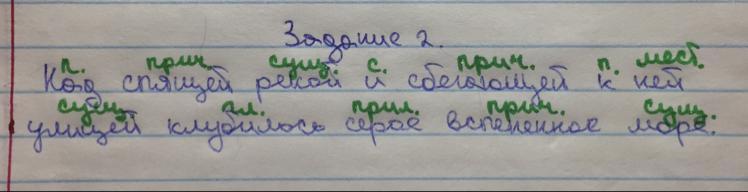 Задание 2.
п. прич. сущ. с. прич. п. мест.
Над спящей рекой и сбегающей к ней
сущ. гл. прил. прич. сущ.
улицей клубилось серое вспененное море.